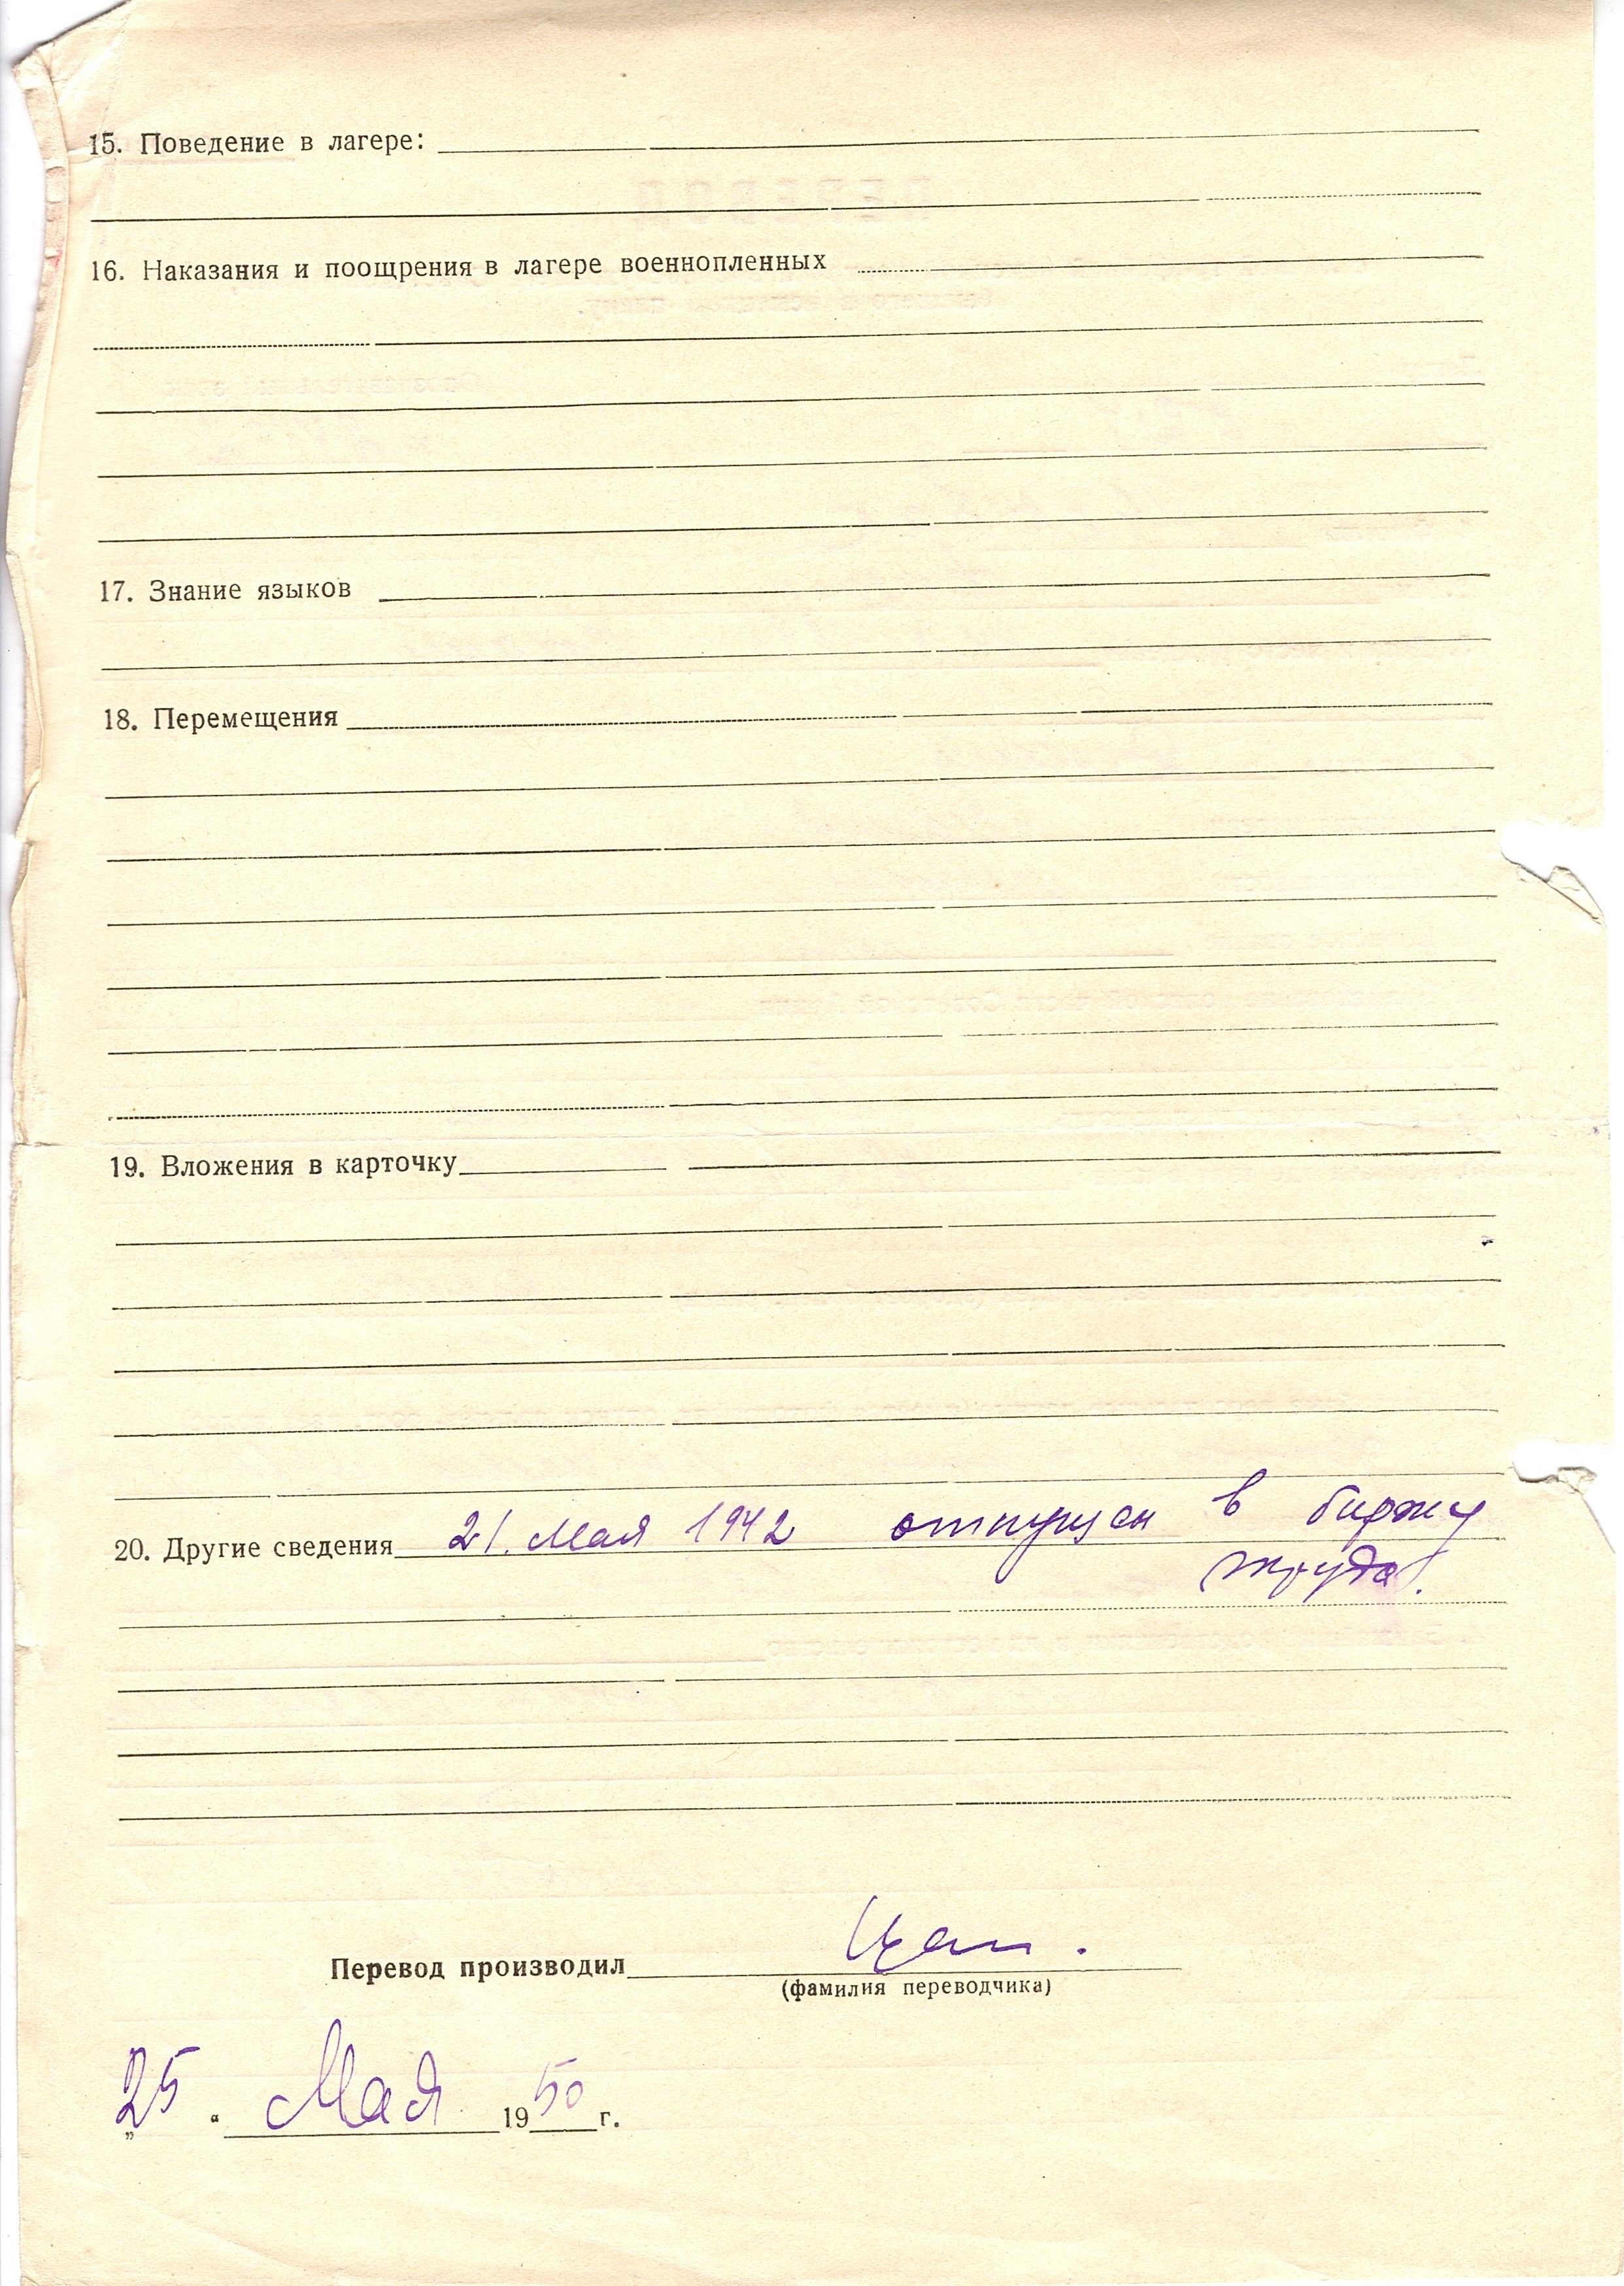 15. Поведение в лагере:
16. Наказания и поощрения в лагере военнопленных
17. Знание языков
18. Перемещения
19. Вложения в карточку
20. Другие сведения 21. Мая 1942 отпущен в биржу
труда.
Перевод производил
(фамилия переводчика)
„25“ Мая 1950 г.